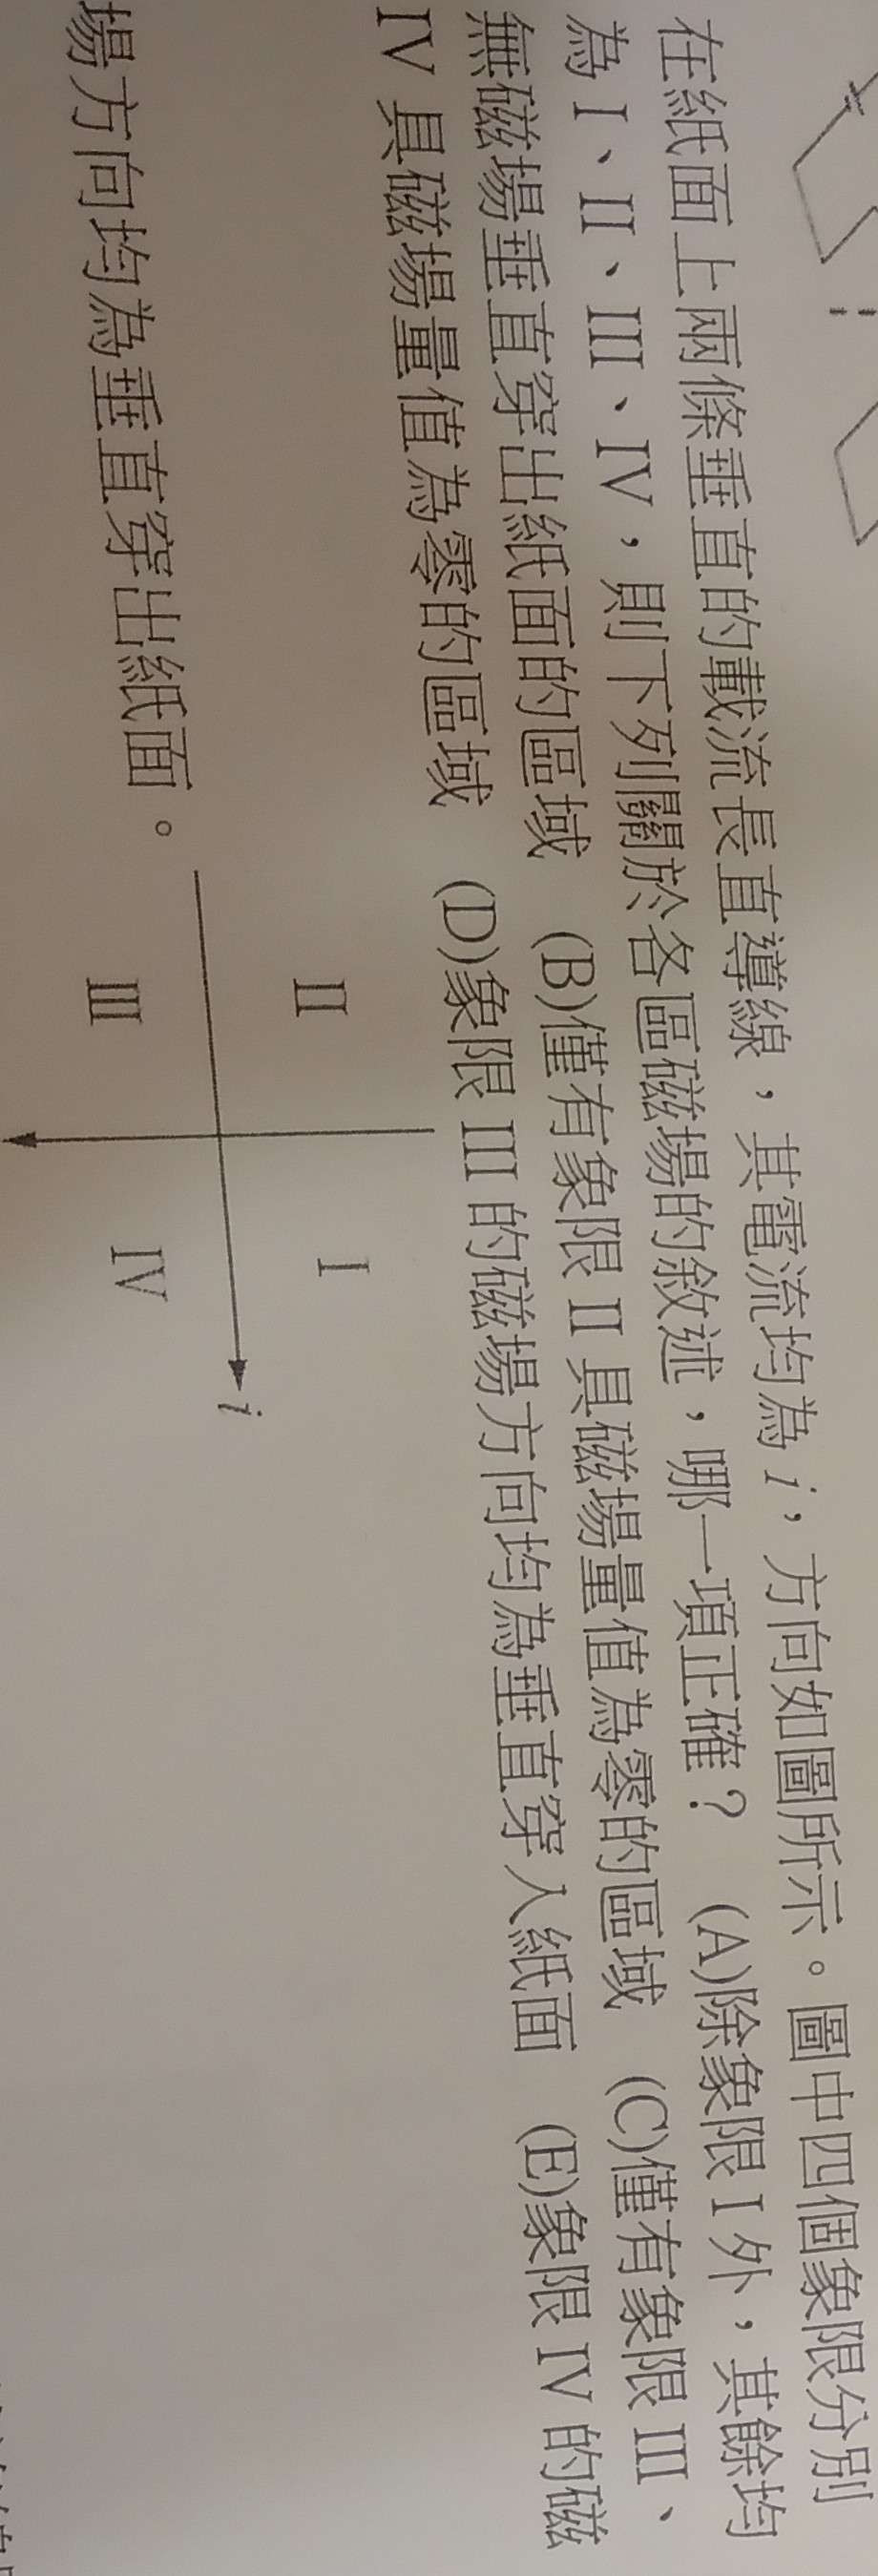 在紙面上兩條垂直的載流長直導線，其電流均為 i，方向如圖所示。圖中四個象限分別
為 I、II、III、IV，則下列關於各區磁場的敘述，哪一項正確？ (A)除象限 I 外，其餘均
無磁場垂直穿出紙面的區域 (B)僅有象限 II 具磁場量值為零的區域 (C)僅有象限 III、
IV 具磁場量值為零的區域 (D)象限 III 的磁場方向均為垂直穿入紙面 (E)象限 IV 的磁
場方向均為垂直穿出紙面。
II I
i
III IV